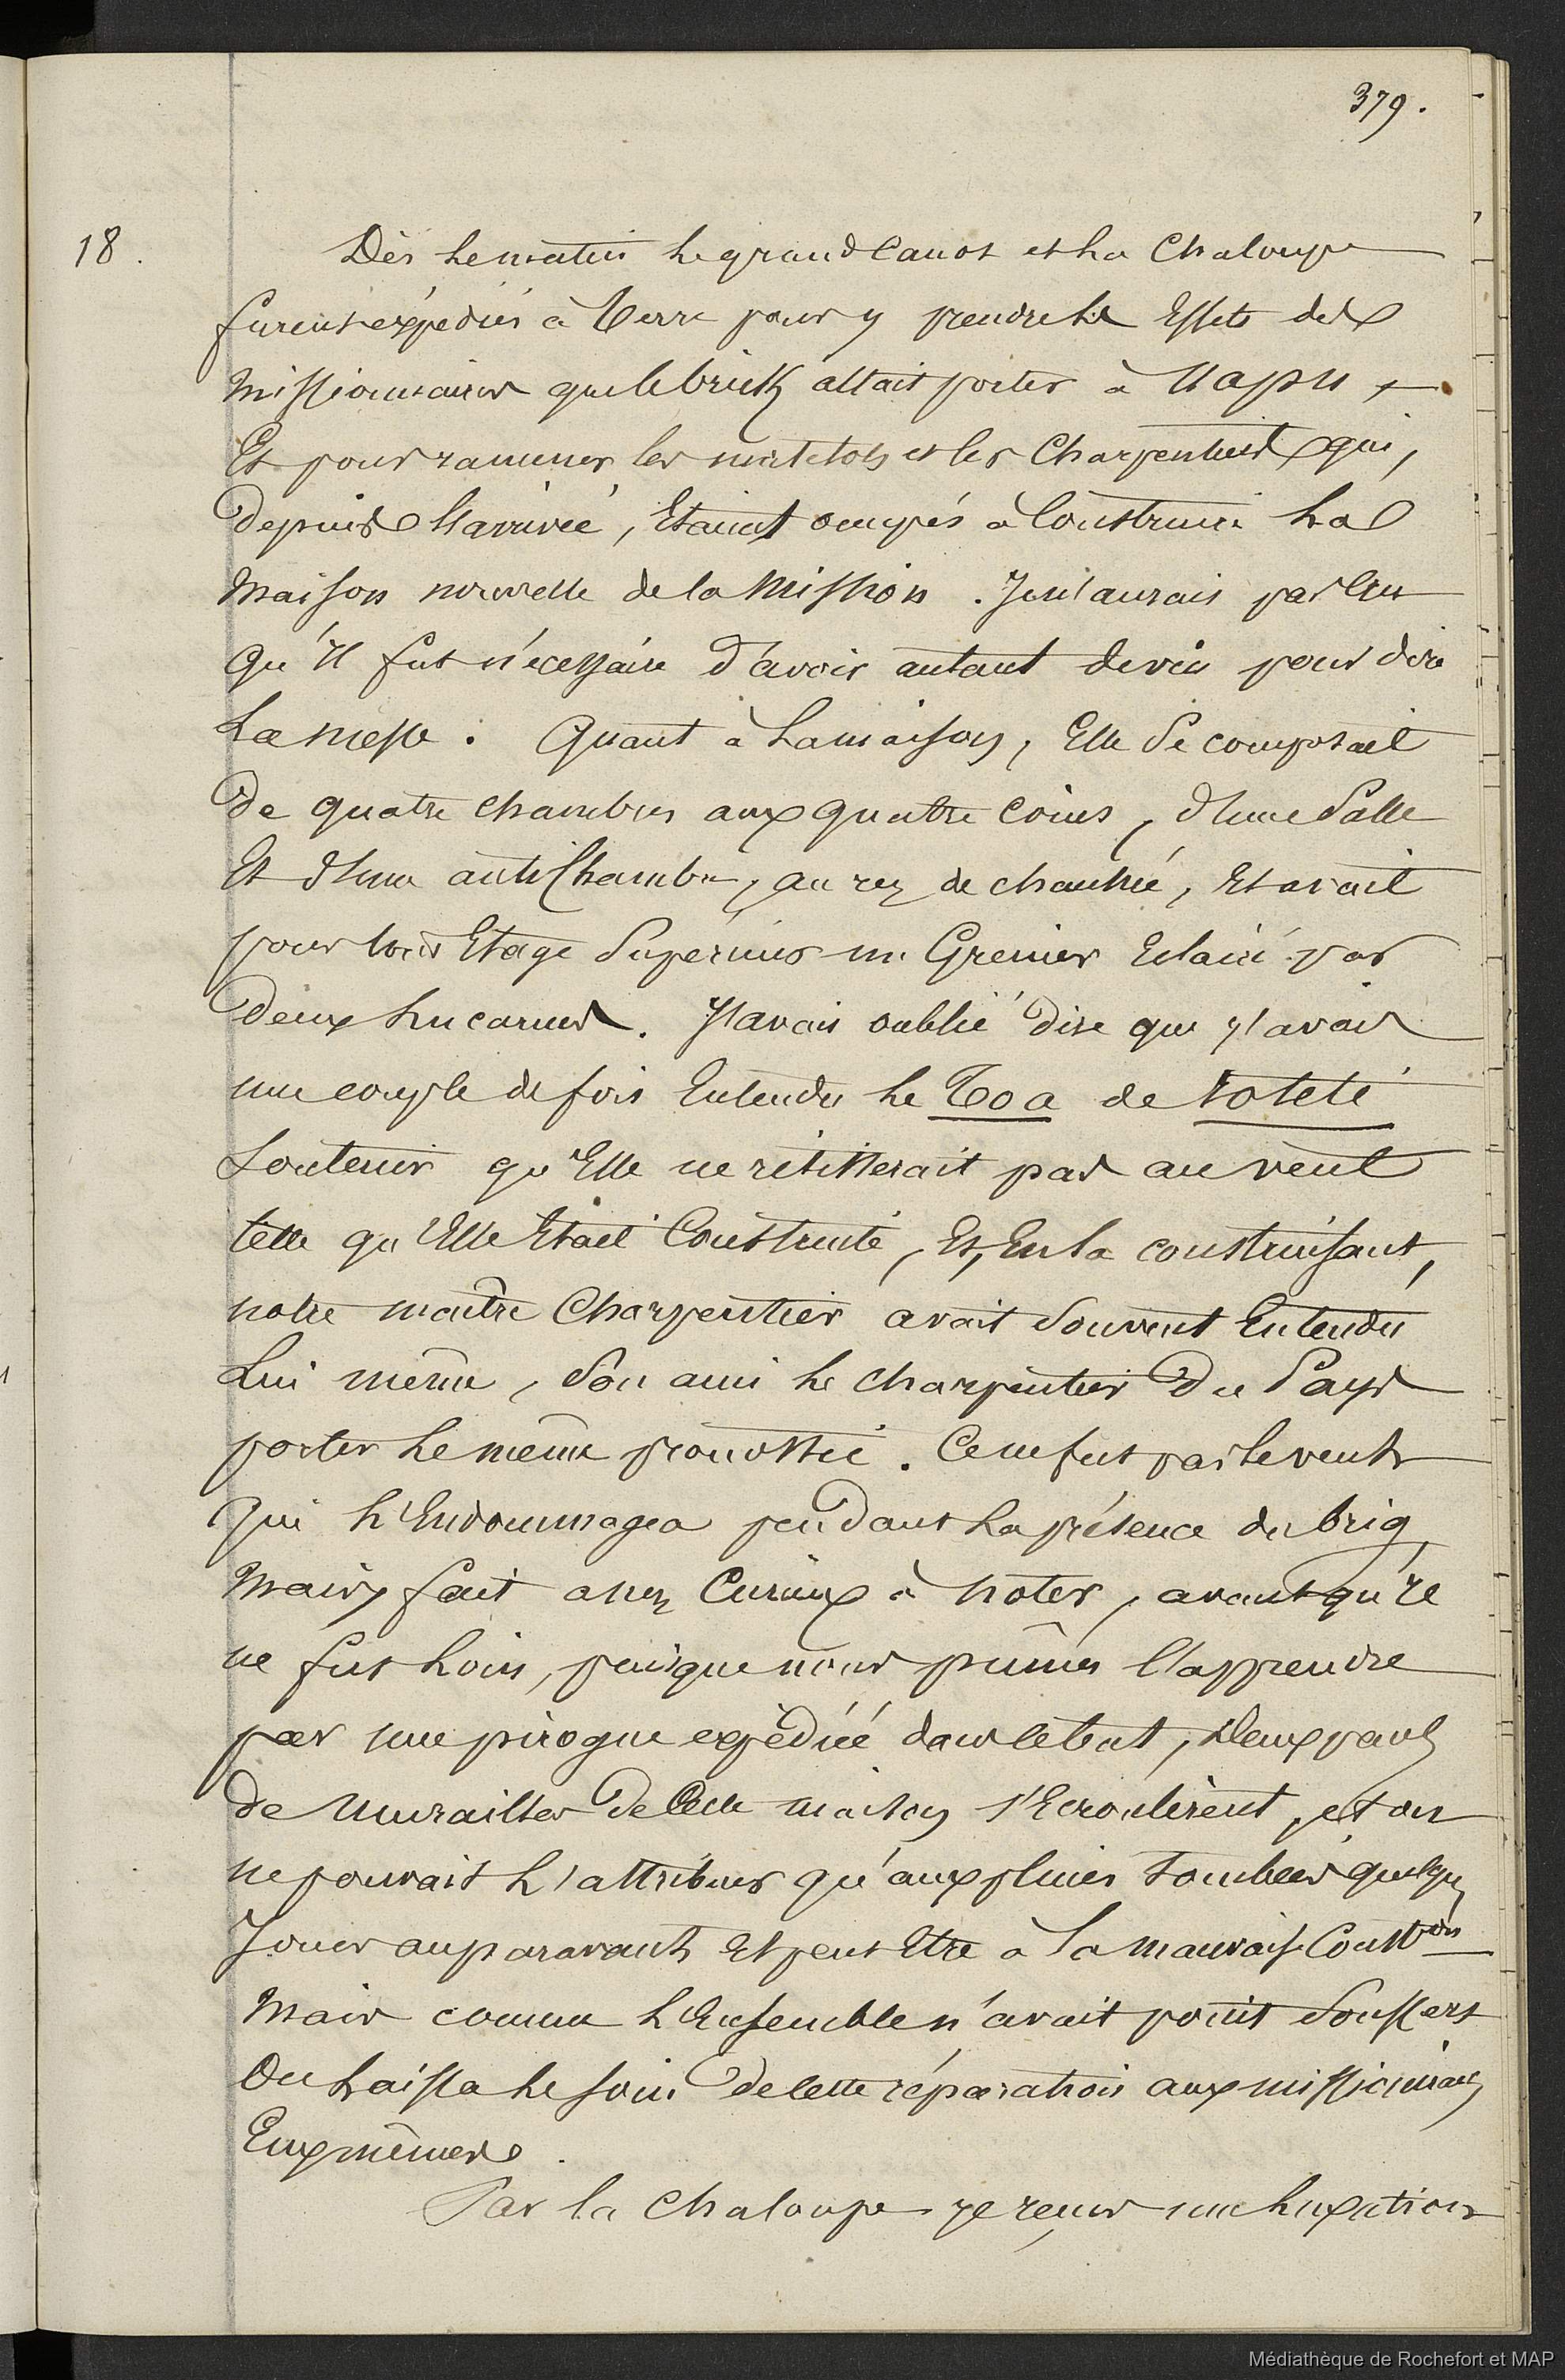 379.
18. Dès le matin le grand Canot et la Chaloupe
furent expédiés à terre pour y prendre les Effets des
Missionnaires que le brick allait porter à Uapu,
Et pour ramener les matelots et les Charpentiers qui,
depuis l'arrivée, Etaient occupés à Construire la
Maison nouvelle de la Mission. Je n'aurais pas Cru
qu'Il fut nécessaire d'avoir autant de vin pour dire
La Messe. Quant à La maison, Elle Se composait
de quatre chambres aux quatre Coins, d'une Salle
Et d'une antiChambre, au rez de chaussée, Et avait
pour tout Etage Supérieur un Grenier Eclairé par
Deux Lucarnes. J'avais oublié dire que j'avais
une couple de fois Entendu le Toa de toteté
Soutenir qu'Elle ne résisterait pas au vent
telle qu'Elle Etait Construite, Et, En la construisant,
notre maître Charpentier avait Souvent Entendu
Lui même, Son ami le charpentier Du Pays
porter le même pronostic. Ce ne fut pas le vent
qui l'Endommagea pendant la présence du brig
Mais, fait assez Curieux à Noter, avant qu'il
ne fut Loin, puisque nous pûmes l'apprendre
par une pirogue expédiée dans le but, Deux pans
de Murailles de Cette maison s'Ecroulèrent, et on
ne pouvait l'attribuer qu'aux pluies tombées quelques
Jours auparavant, Et peut Etre à la mauvaise Conston
Mais comme l'Ensemble n'avait point Souffert
On Laissa le soin de cette réparation aux missionnaires
Eux mêmes.
Par la Chaloupe je reçus une luxation
Médiathèque de Rochefort et MAP